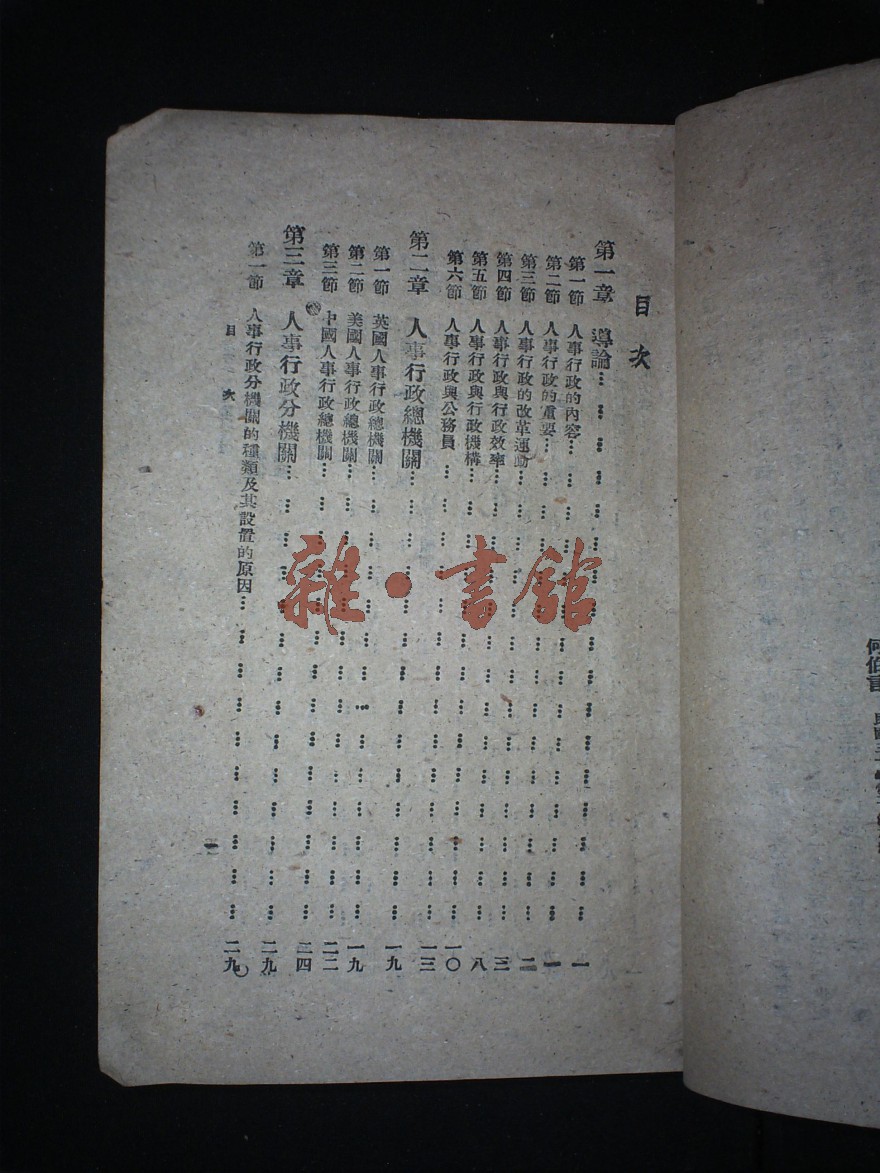 何伯言
目次
第一章 導論……………………………………一
第一節 人事行政的內容……………………………………一
第二節 人事行政的重要……………………………………二
第三節 人事行政的改革運動……………………………………三
第四節 人事行政與行政效率……………………………………八
第五節 人事行政與行政機構……………………………………一〇
第六節 人事行政與公務員……………………………………一三
第二章 人事行政總機關……………………………………一九
第一節 英國人事行政總機關……………………………………一九
第二節 美國人事行政總機關……………………………………二二
第三節 中國人事行政總機關……………………………………二四
第三章 人事行政分機關……………………………………二九
第一節 人事行政分機關的種類及其設置的原因……………………………………二九
目次
一
雜·書館